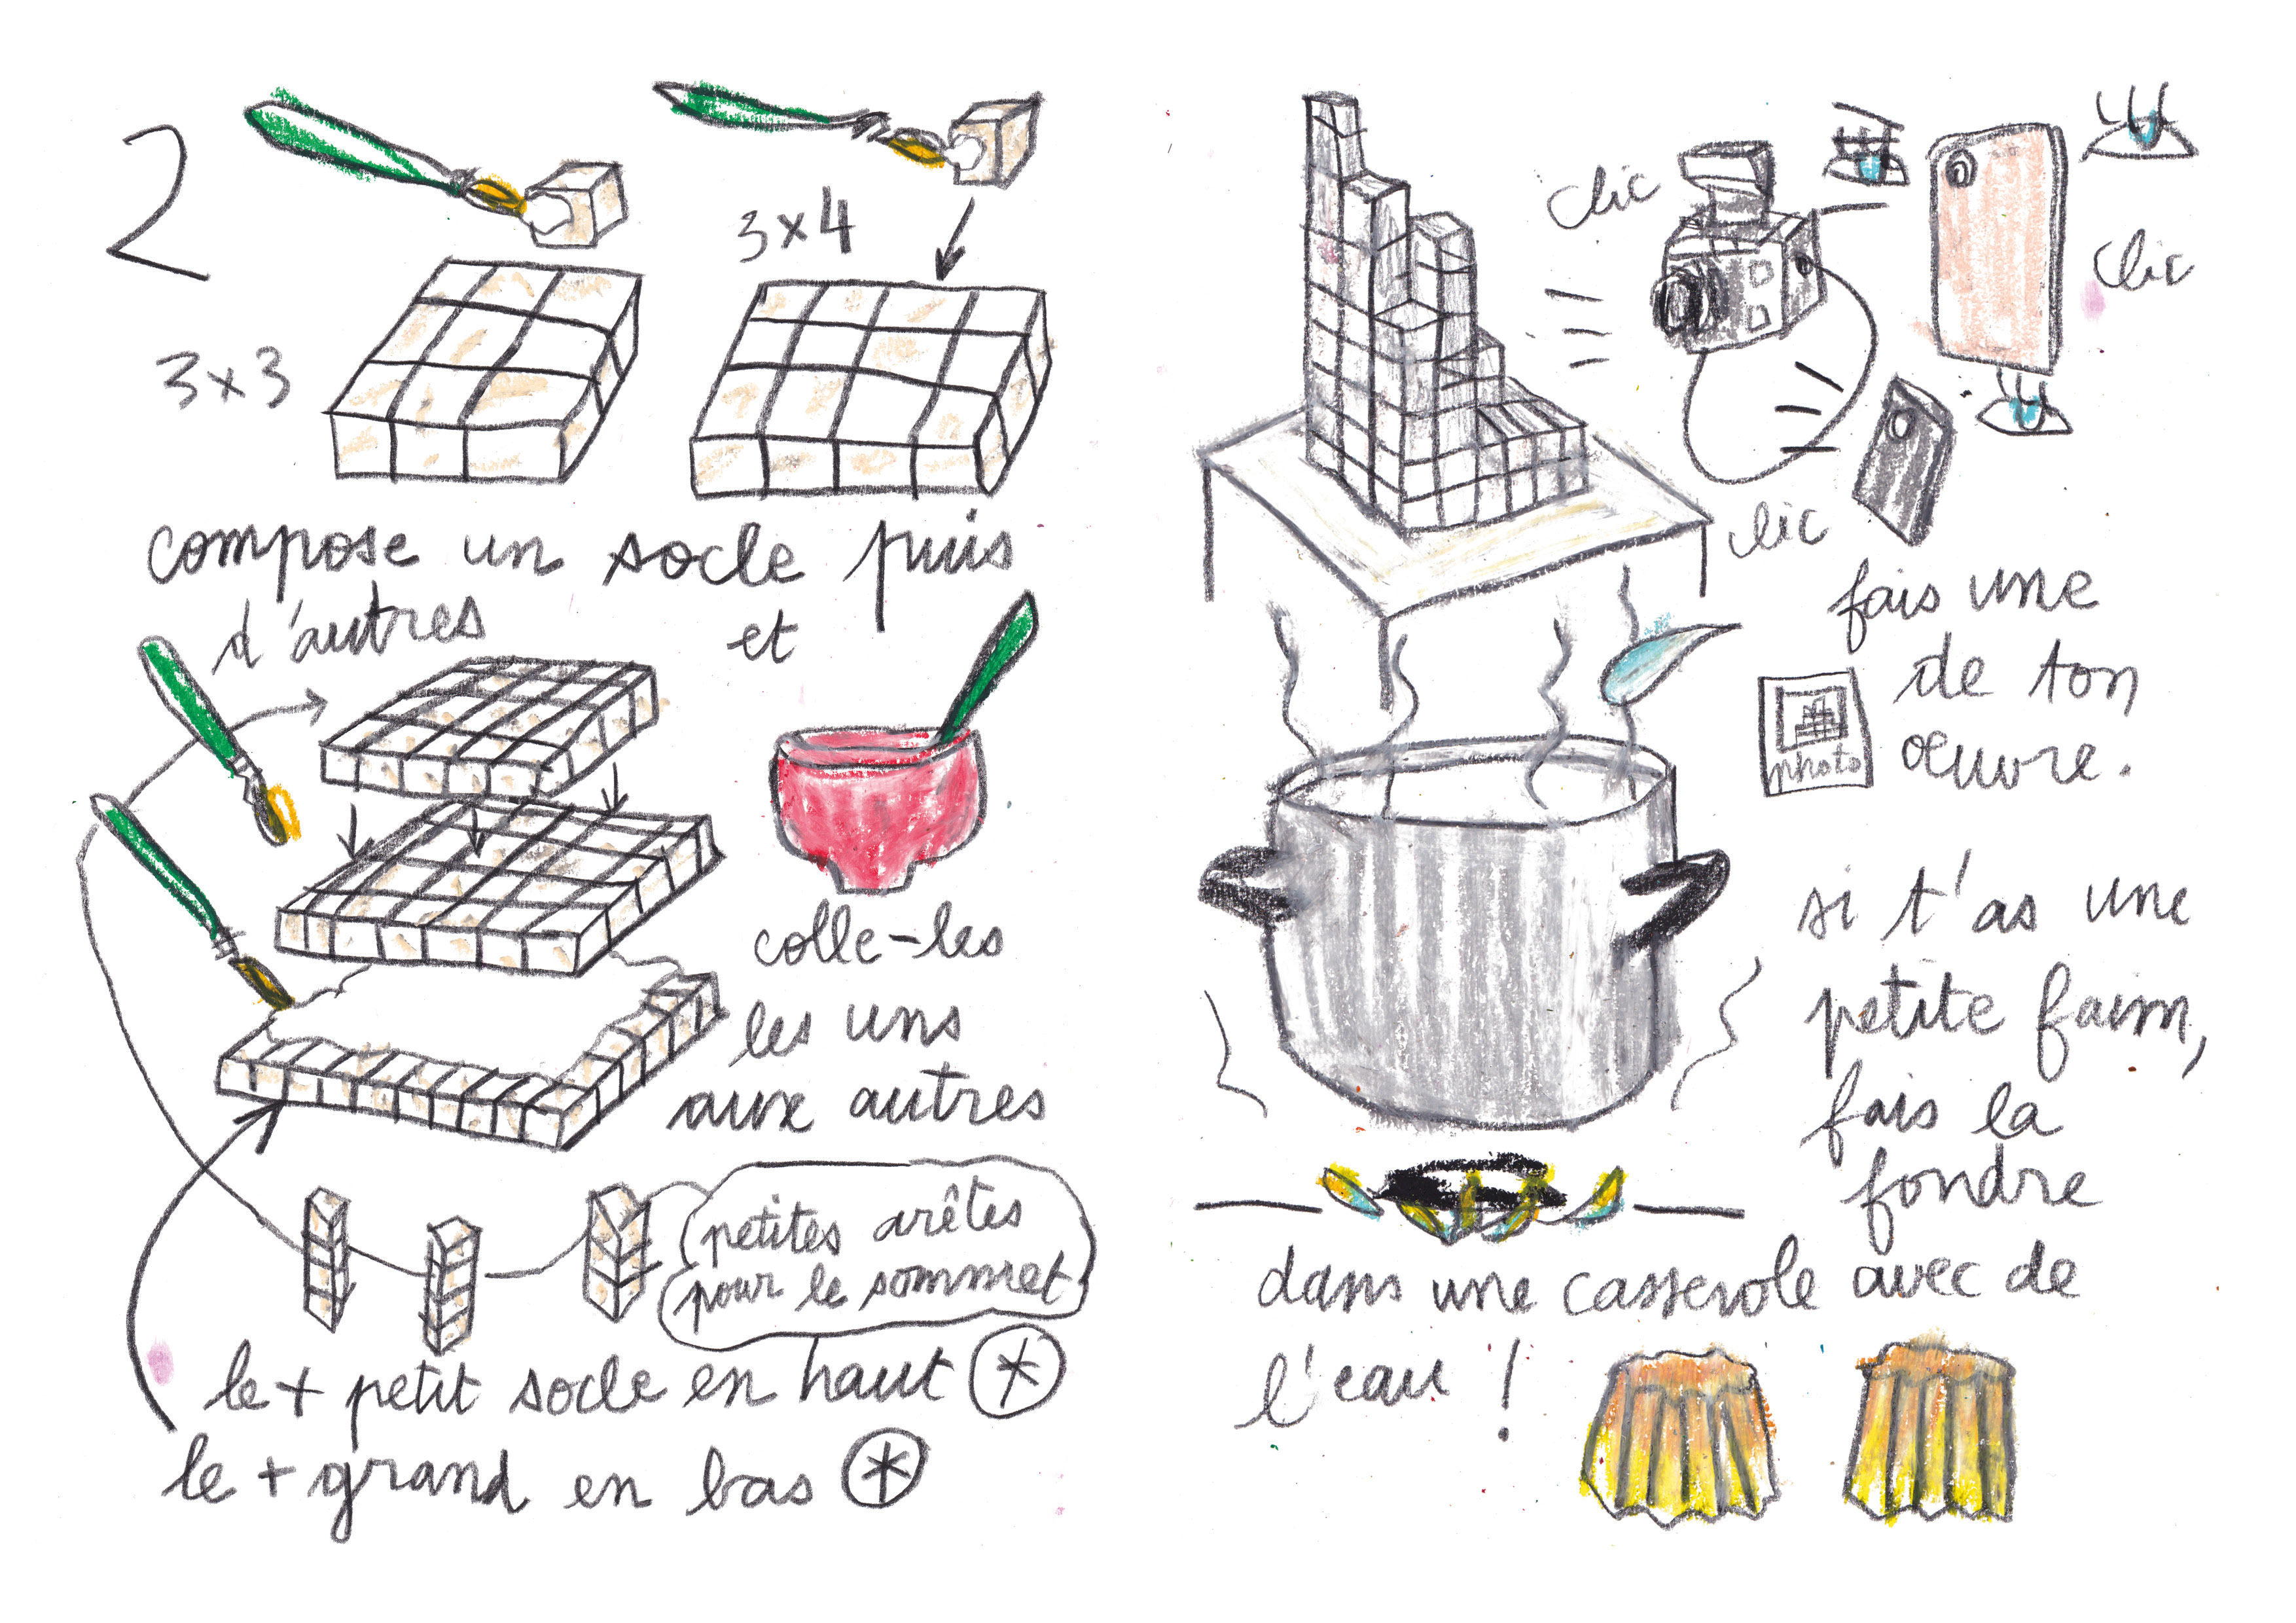 2
3x4
3x3
compose un socle puis
d'autres et
colle-les
les uns
aux autres
petites arêtes
pour le sommet
le + petit socle en haut *
le + grand en bas *
clic
clic
clic
fais une
de ton
photo
oeuvre.
si t'as une
petite faim,
fais la
fondre
dans une casserole avec de
l'eau !